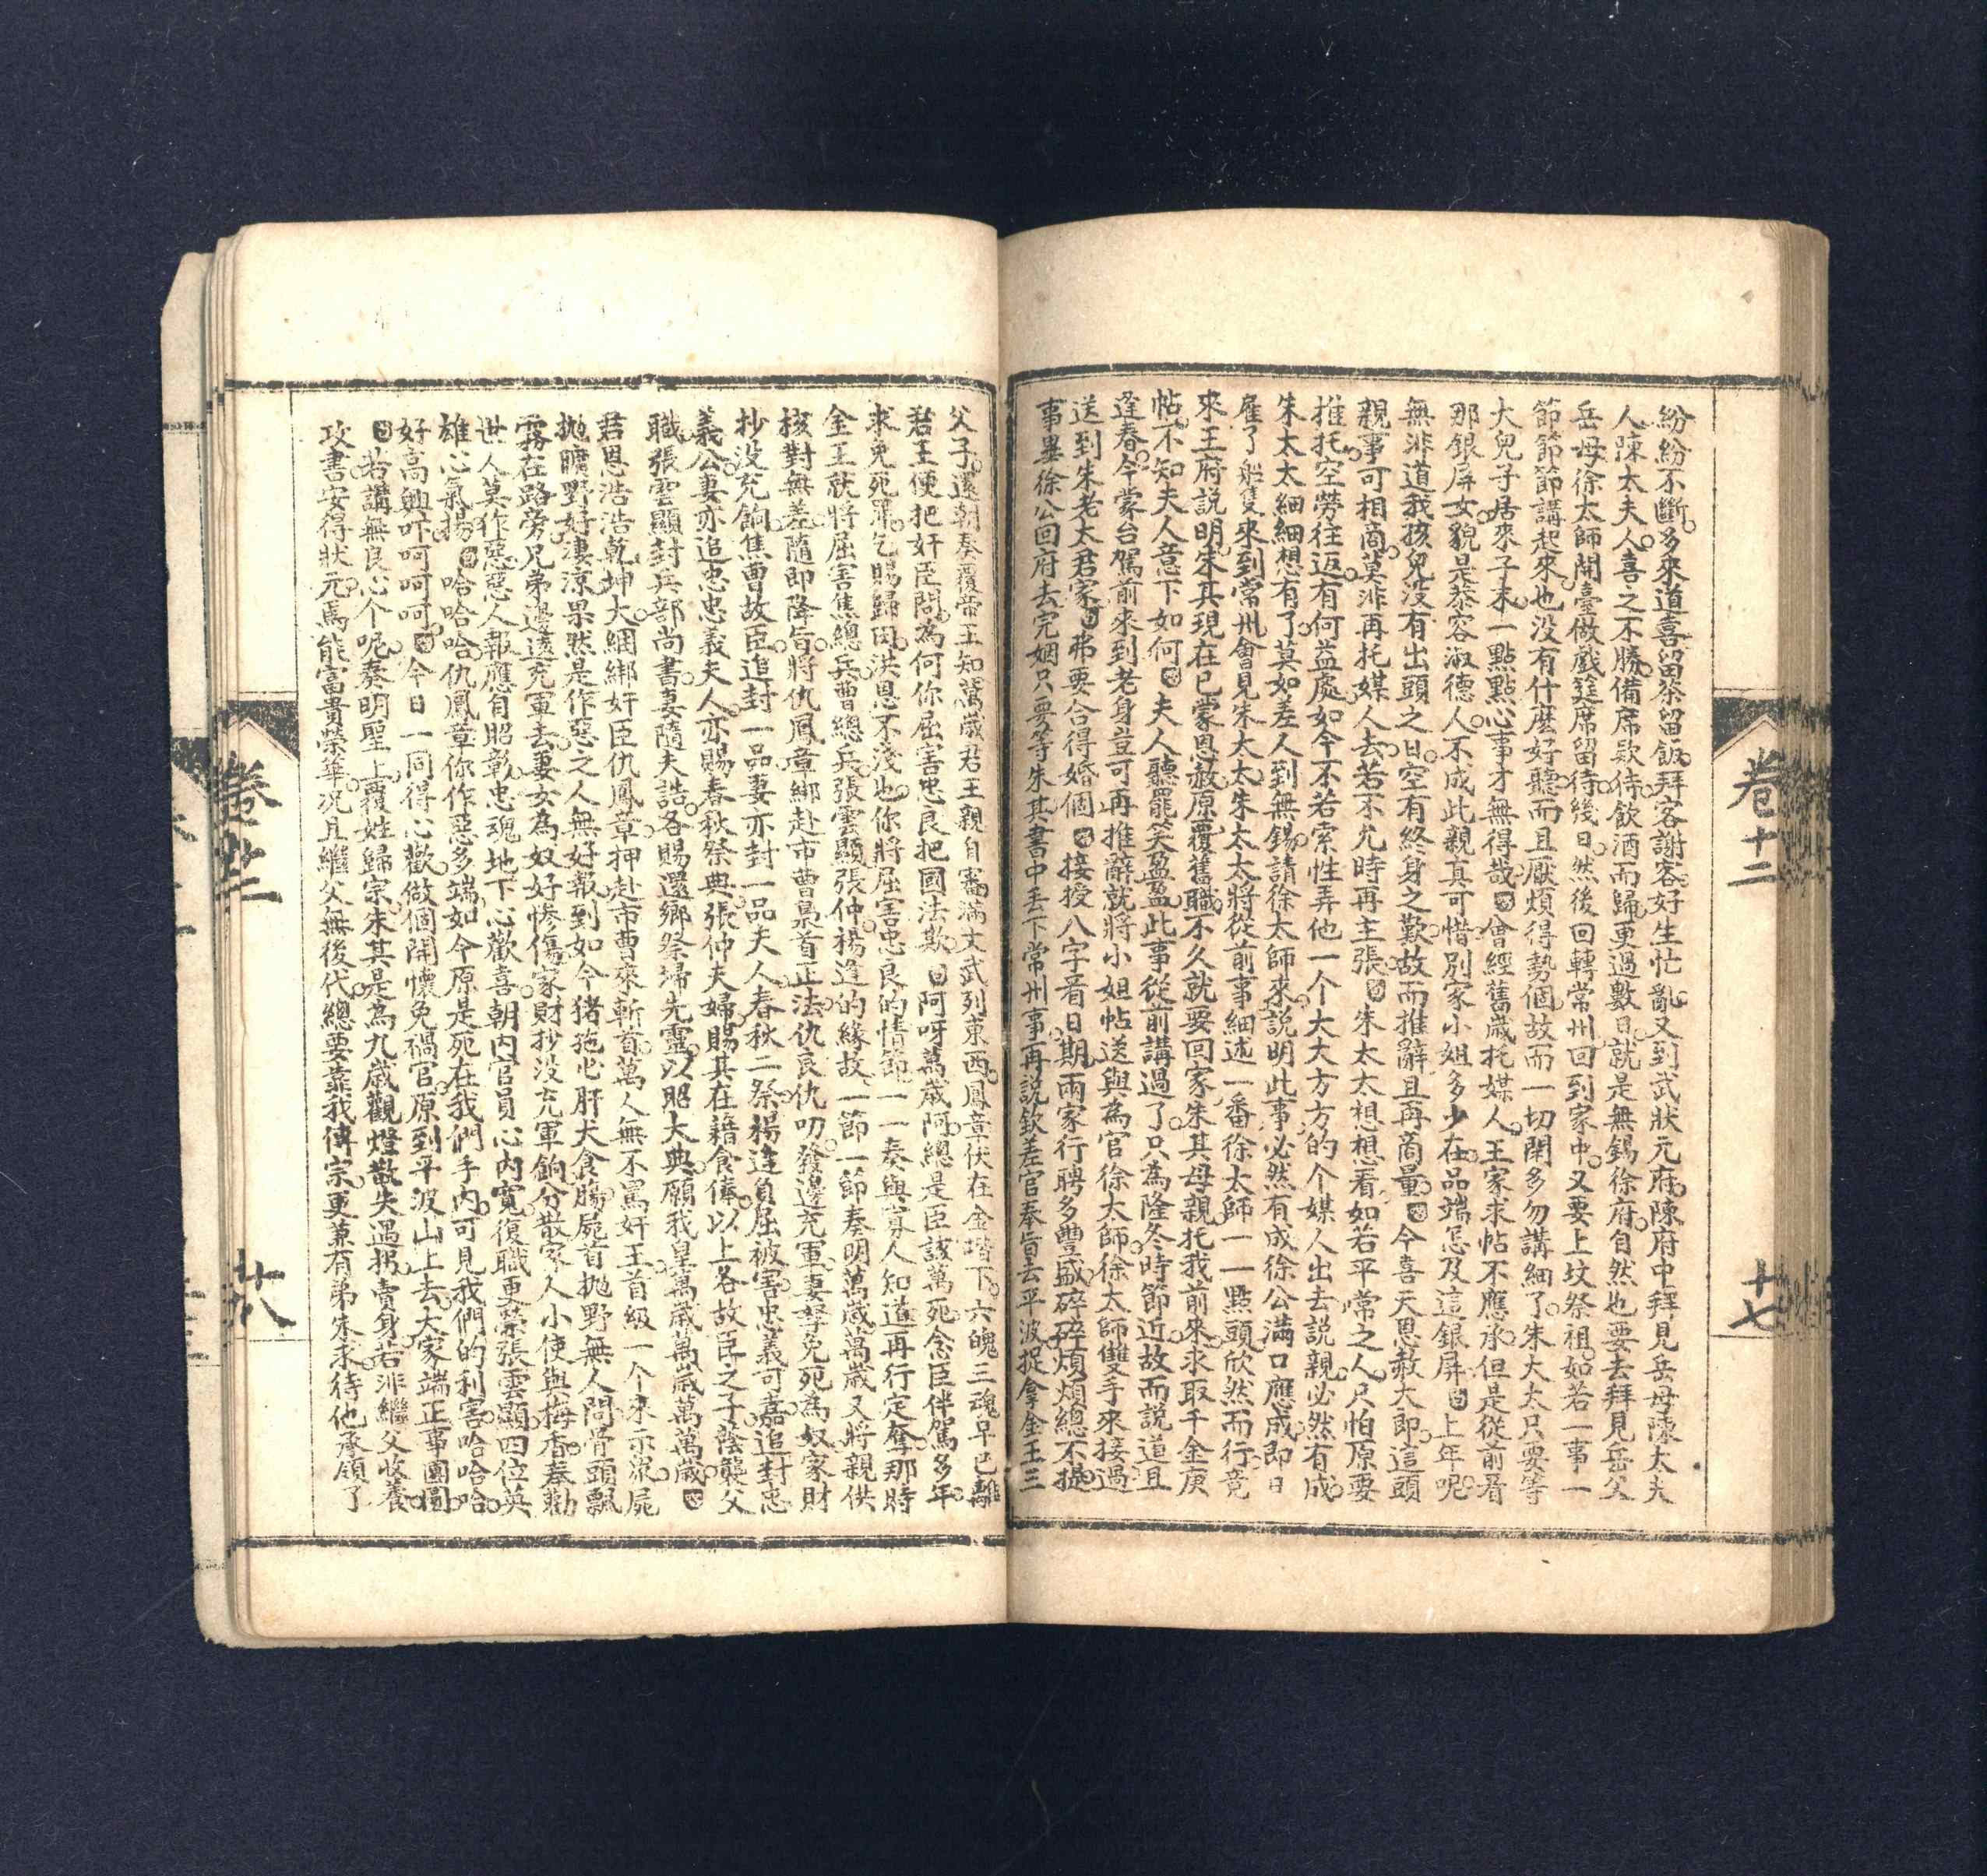 紛紛不斷多來道喜留茶留飯拜客謝客好生忙亂又到武狀元府陳府中拜見岳母陳太夫
人陳太夫人喜之不勝備席欵待飲酒而歸更過數日就是無錫徐府自然也要去拜見岳父
岳母徐太師開臺做戲筵席留待幾日然後回轉常州回到家中又要上坟祭祖如若一事一
節節節講起來也没有什麽好聽而且厭煩得勢個故而一切閑多勿講細了朱太太只要等
大兒子居來子末一點點心事才無得哉 曾經舊歲托媒人王家求帖不應承但是從前看
那銀屏女貌是恭容淑德人不成此親真可惜别家小姐多多少在品端怎及這銀屏 上年呢
無非道我孩兒没有出頭之日空有終身之歎故而推辭且再商量 今喜天恩赦大郎這頭
親事可相商莫非再托媒人去若不允時再主張 朱太太想想看如若平常之人只怕原要
推托空勞往返有何益處如今不若索性弄他一个大大方方的个媒人出去説親必然有成
朱太太細細想有了莫如差人到無錫請徐太師來説明此事必然有成徐公滿口應成即日
雇了船隻來到常州會見朱太太朱太太將從前事細述一番徐太師一一點頭欣然而行竟
來王府説明朱其現在已蒙恩赦原覆舊職不久就要回家朱其母親托我前來求取千金庚
帖不知夫人意下如何 夫人聽罷笑盈盈此事從前講過了只為隆冬時節近故而説道且
逢春今蒙台駕前來到老身豈可再推辭就將小姐帖送與為官徐太師徐太師雙手來接過
送到朱老太君家 弗要合得婚個 接授八字看日期兩家行聘多豐盛碎碎煩煩總不提
事畢徐公回府去完姻只要等朱其書中丟下常州事再説欽差官奉旨去平波捉拿金王三
卷十二
十七
父子還朝奏覆帝王知萬歲君王親自審滿文武列東西鳳章伏在金堦下六魄三魂早已離
君王便把奸臣問為何你屈害忠良把國法欺 阿呀萬歲阿總是臣該萬死念臣伴駕多年
求免死罪乞賜歸田洪恩不淺也你將屈害忠良的情節一一奏與寡人知道再行定奪那時
金王就將屈害焦總兵曹總兵張雲顯張仲楊逵的緣故一節一節奏明萬歲萬歲又將親供
核對無差隨即降旨將仇鳳章綁赴市曹梟首正法仇良仇叨發邊充軍妻孥免死為奴家財
抄没充餉焦曹故臣追封一品妻亦封一品夫人春秋二祭楊逵負屈被害忠義可嘉追封忠
義公妻亦追忠忠義夫人亦賜春秋祭典張仲夫婦賜其在籍食俸以上各故臣之子蔭襲父
職張雲顯封兵部尚書妻隨夫誥各賜還鄉祭掃先靈以昭大典願我皇萬歲萬歲萬萬歲
君恩浩浩乾坤大綑綁奸臣仇鳳章押赴市曹來斬首萬人無不罵奸王首級一个來示衆屍
抛曠野好凄凉果然是作惡之人無好報到如今猪拖心肝犬食腸屍首抛野無人問骨頭飄
霧在路旁兄弟邊遠充軍去妻女為奴好慘傷家財抄没充軍餉分散家人小使與梅香奉勸
世人莫作惡惡人報應自昭彰忠魂地下心歡喜朝内官員心内寬復職更榮張雲顯四位英
雄心氣揚 哈哈哈仇鳳章你作惡多端如今原是死在我們手内可見我們的利害哈哈哈
好高興吓呵呵呵 今日一同得心歡做個開懷免禍官原到平波山上去大家端正事團圓
若講無良心个呢奏明聖上覆姓歸宗朱其是為九歲觀燈散失遇拐賣身若非繼父收養
攻書安得狀元焉能富貴榮華况且繼父無後代總要靠我傳宗更兼有弟朱求待他承領了
卷十二
十八